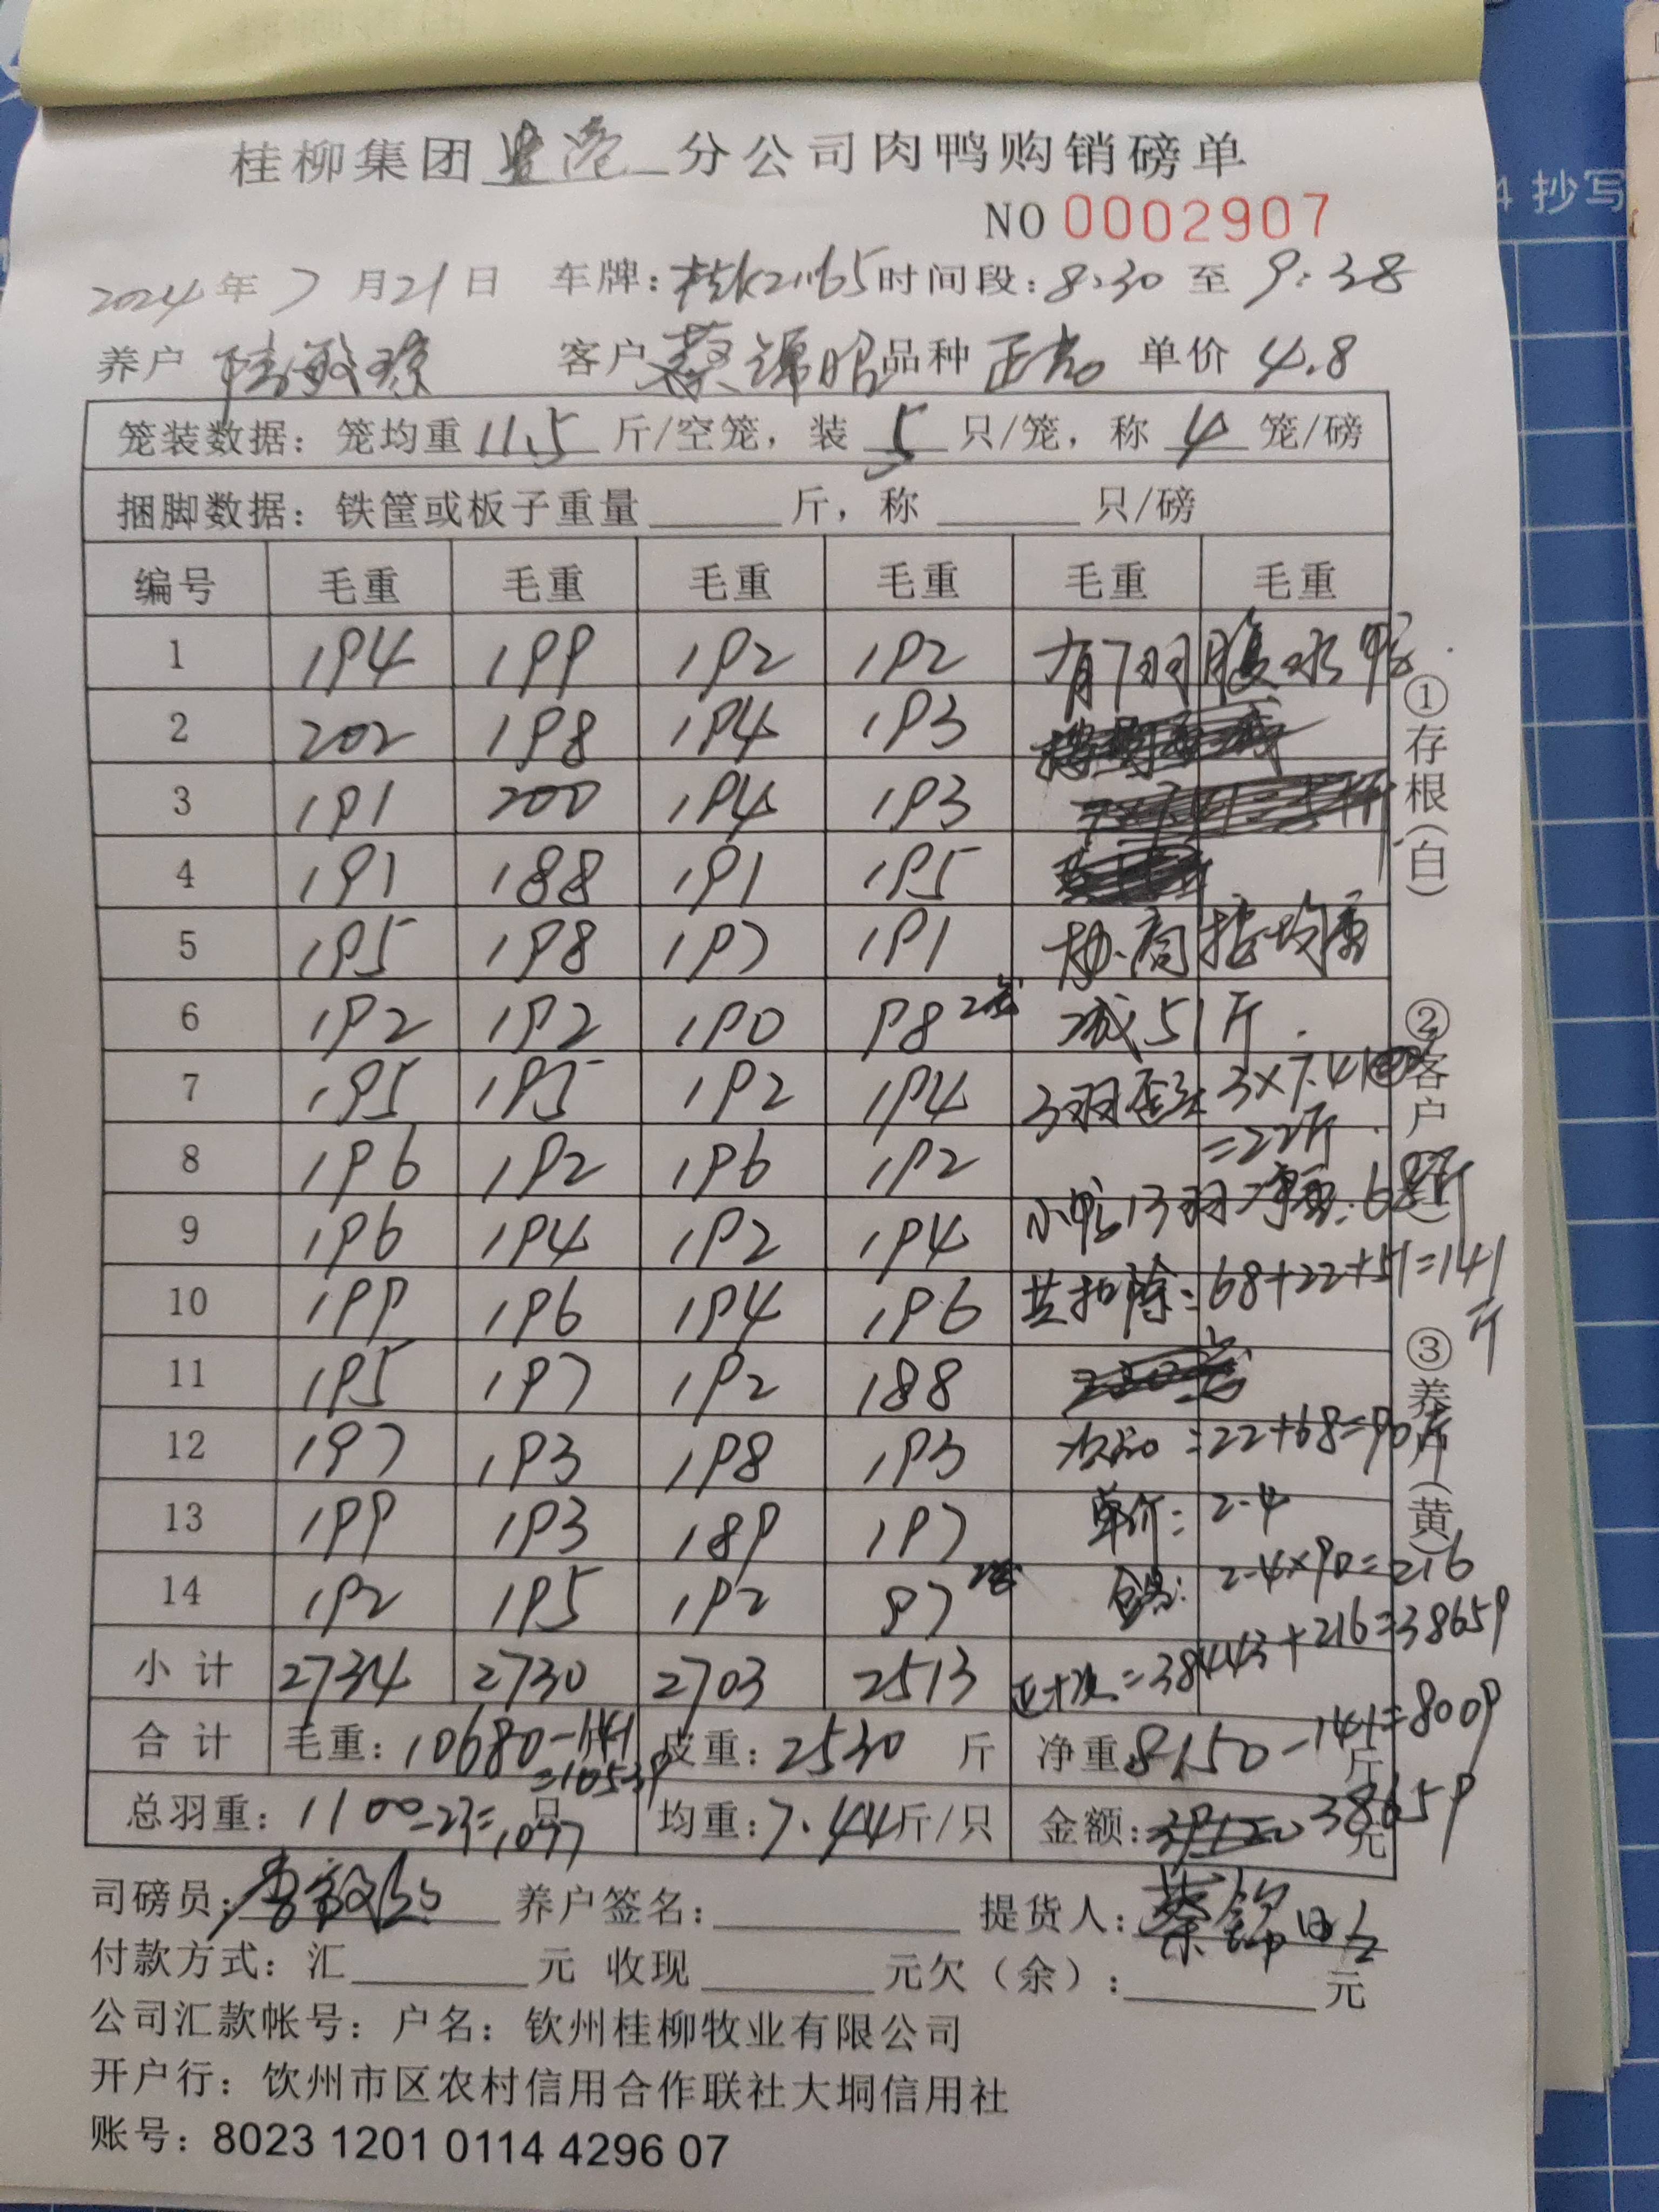 桂柳集团 分公司肉鸭购销磅单
NO 0002907
2024年7月21日 车牌:桂K21165 时间段:8:30至9:38
养户 陆敏琼 客户 蔡锦昭 品种 正常 单价 4.8
笼装数据:笼均重11.5斤/空笼,装5只/笼,称4笼/磅
捆脚数据:铁筐或板子重量______斤,称______只/磅
编号 毛重 毛重 毛重 毛重 毛重 毛重
1 194 199 192 192 有7羽腹水鸭
2 202 198 194 193
3 191 200 194 193
4 191 188 191 195
5 195 198 197 191 协商按均重
6 192 192 190 98 2笼 减51斤.
7 195 195 192 194 3羽歪头 3×7.41
=22斤.
8 196 192 196 192
小鸭13羽净重:68斤
9 196 194 192 194
10 199 196 194 196 共扣除:68+22+51=141斤
11 195 197 192 188
12 197 193 198 193 次品:22+68=90斤
13 199 193 189 197 单价:2.4
14 192 195 192 97 2笼 金额:2.4×90=216
小计 2734 2730 2703 2513 正+次=38443+216=38659
合计 毛重:10680-141=10539 皮重:2530斤 净重:8150-141=8009斤
总羽重:1100-23=1077只 均重:7.44斤/只 金额:39120 38659元
司磅员: 养户签名:______ 提货人:蔡锦昭
付款方式:汇______元 收现______元欠(余):______元
公司汇款帐号:户名:钦州桂柳牧业有限公司
开户行:饮州市区农村信用合作联社大垌信用社
账号:8023 1201 0114 4296 07
①存根(白)
②客户
③养户(黄)
4 抄写